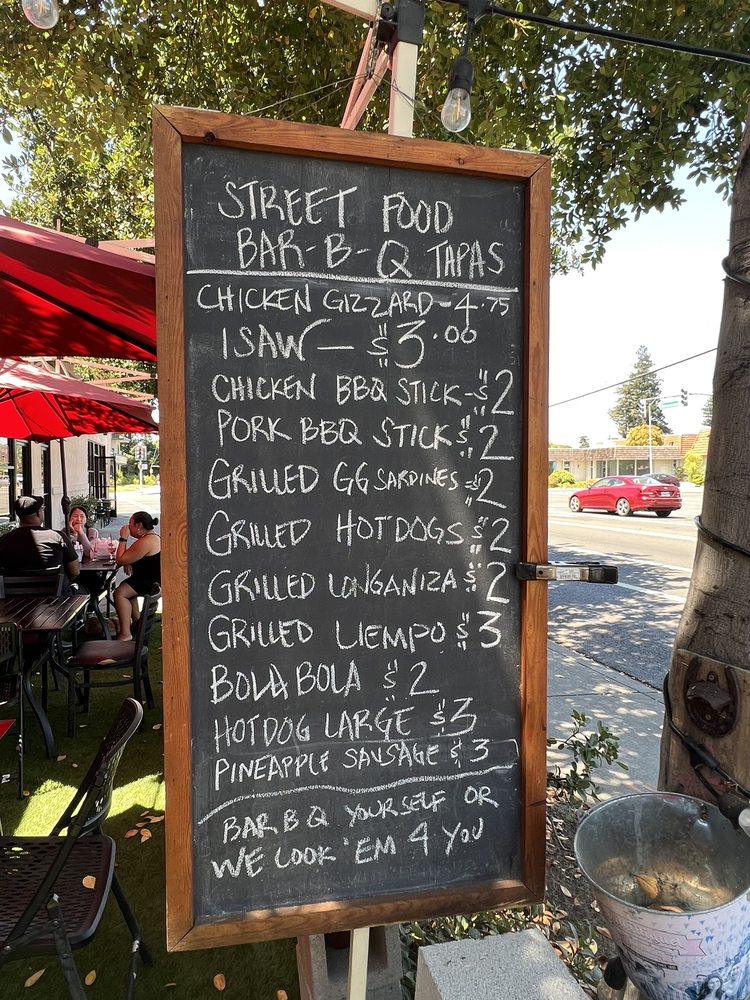 STREET FOOD
BAR-B-Q TAPAS
CHICKEN GIZZARD-4.75
ISAW - $3.00
CHICKEN BBQ STICK-$2
PORK BBQ STICK $2
GRILLED GG SARDINES $2
GRILLED HOTDOGS $2
GRILLED LONGANIZA $2
GRILLED LIEMPO $3
BOLA BOLA $2
HOTDOG LARGE $3
PINEAPPLE SAUSAGE $3
BAR B Q YOURSELF OR
WE COOK 'EM 4 YOU